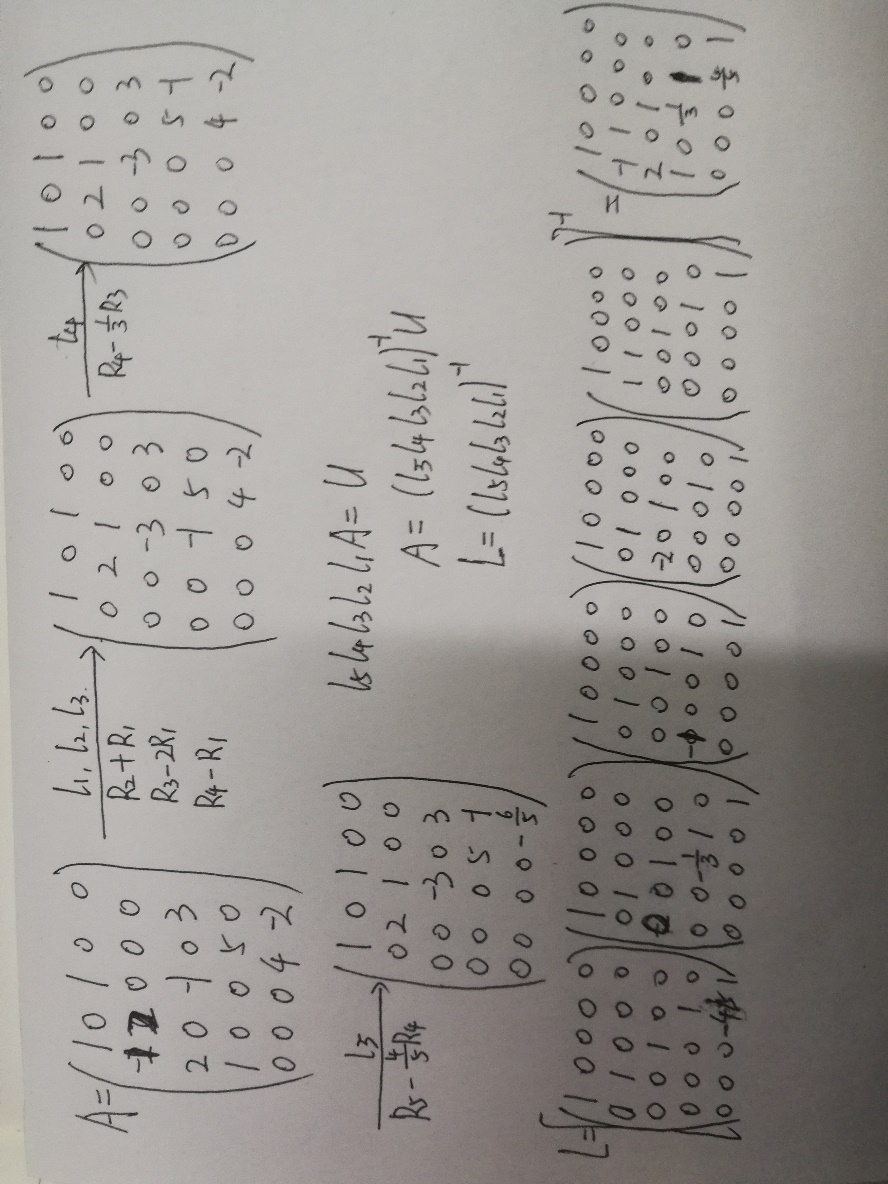 A = ( 1 0 1 0 0 ; -1 2 0 0 0 ; 2 0 -1 0 3 ; 1 0 0 5 0 ; 0 0 0 4 -2 ) L1, L2, L3. → R2+R1 R3-2R1 R4-R1 ( 1 0 1 0 0 ; 0 2 1 0 0 ; 0 0 -3 0 3 ; 0 0 -1 5 0 ; 0 0 0 4 -2 ) L4 → R4-1/3R3 ( 1 0 1 0 0 ; 0 2 1 0 0 ; 0 0 -3 0 3 ; 0 0 0 5 -1 ; 0 0 0 4 -2 )
L5 → R5-4/5R4 ( 1 0 1 0 0 ; 0 2 1 0 0 ; 0 0 -3 0 3 ; 0 0 0 5 -1 ; 0 0 0 0 -6/5 )
L5L4L3L2L1A = U
A = (L5L4L3L2L1)^-1 U
L = (L5L4L3L2L1)^-1
L = [ ( 1 0 0 0 0 ; 0 1 0 0 0 ; 0 0 1 0 0 ; 0 0 0 1 0 ; 0 0 0 -4/5 1 ) ( 1 0 0 0 0 ; 0 1 0 0 0 ; 0 0 1 0 0 ; 0 0 -1/3 1 0 ; 0 0 0 0 1 ) ( 1 0 0 0 0 ; 0 1 0 0 0 ; 0 0 1 0 0 ; -1 0 0 1 0 ; 0 0 0 0 1 ) ( 1 0 0 0 0 ; 0 1 0 0 0 ; -2 0 1 0 0 ; 0 0 0 1 0 ; 0 0 0 0 1 ) ( 1 0 0 0 0 ; 1 1 0 0 0 ; 0 0 1 0 0 ; 0 0 0 1 0 ; 0 0 0 0 1 ) ]^-1 = ( 1 0 0 0 0 ; -1 1 0 0 0 ; 2 0 1 0 0 ; 1 0 1/3 1 0 ; 0 0 0 4/5 1 )